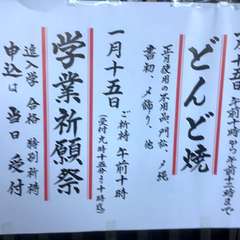 月十五日 午前十時から午前十二時まで
どんど焼
正月使用の不用品、門松、〆縄
書初、〆飾り、他
一月十五日 ご祈祷 午前十時
(受付九時十五分~十時迄)
学業祈願祭
進入学 合格 特別祈祷
申込は 当日 受付